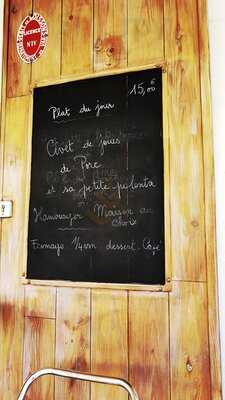 LICENCE
NTV
Plat du jour 15,00
Civet de joues
de Porc
et sa petite polenta
ou
Hamburger Maison au
choix
Fromage 1/4 vin dessert Café